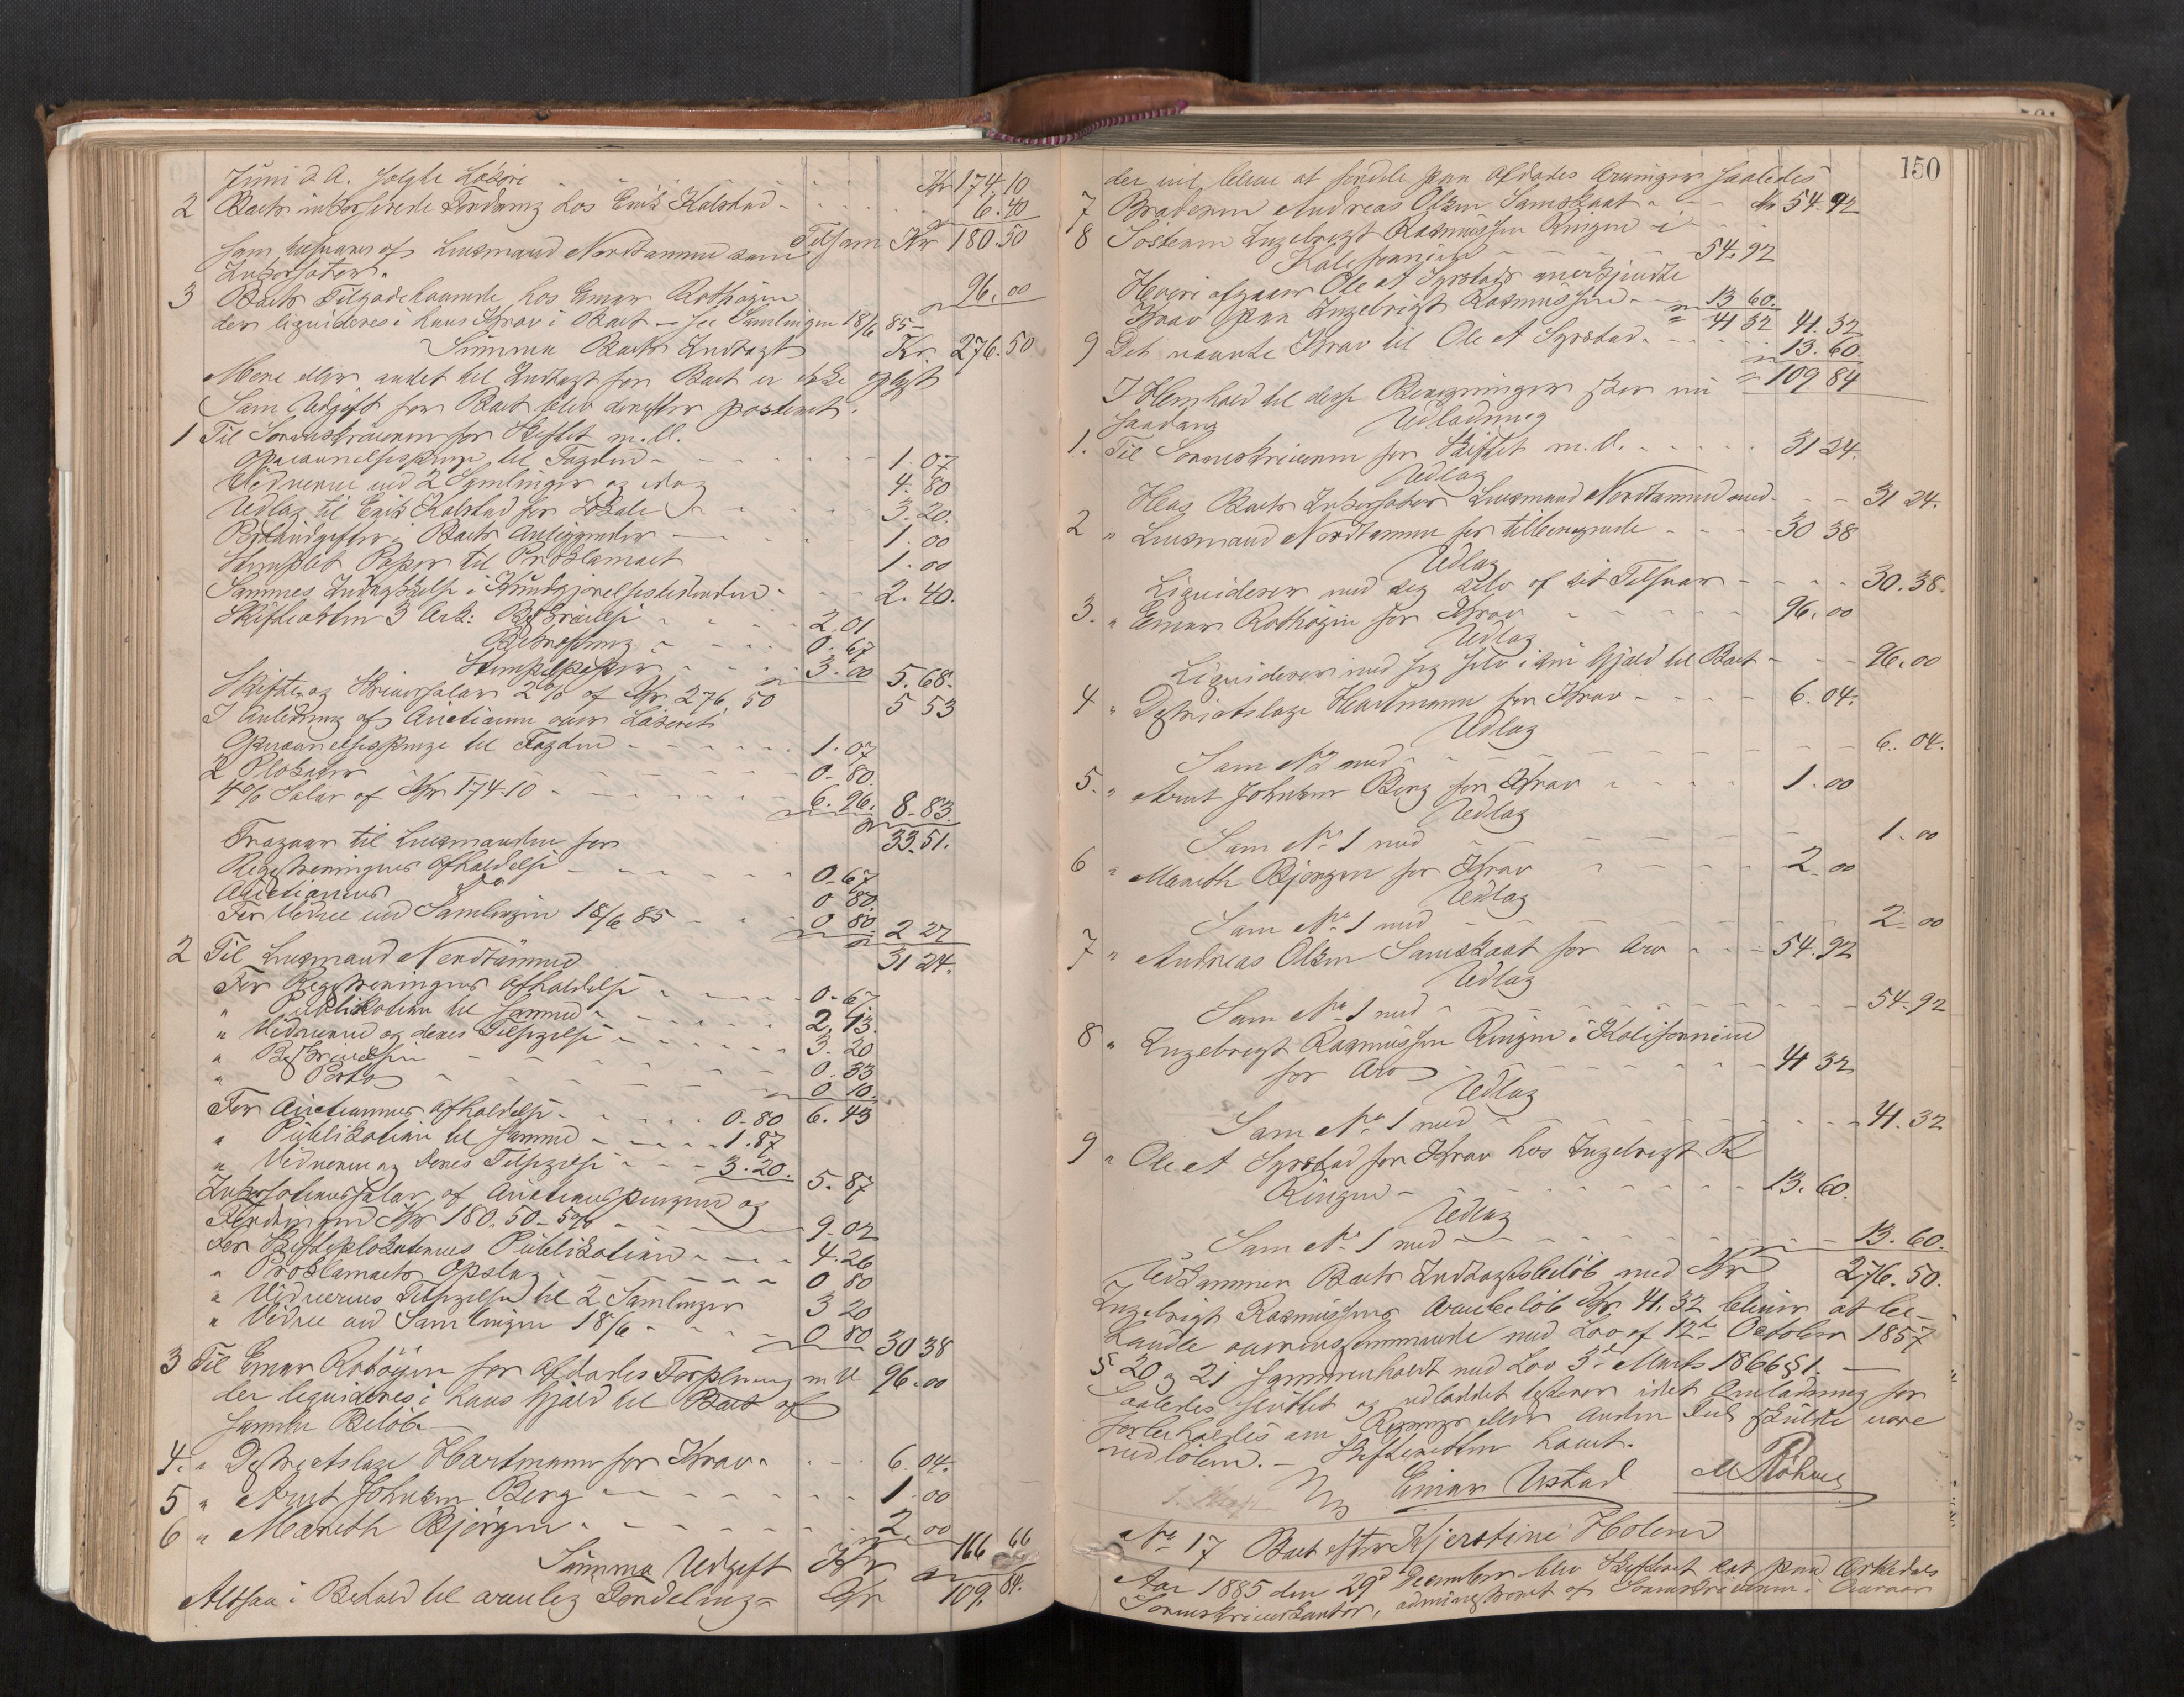 Juni d. A. solgte Løsøre - - - Kr 174.10
2 Boets inkasserede Fordring hos Erik Kalstad - - - 6.40
Tilsam Kr 180.50
som besvares af Lensmand Nordtømme som
Inkassator.
3 Boets Tilgodehavende hos Einar Rothøgen 96.00
der liquideres i hans Krav i Boet - see Samlingen 18/6 85 -
Summa Boets Indtægt Kr. 276.50
Mere eller andet til Indtægt for Boet er ikke oplyst
Som Udgift for Boet blev derefter posteret.
1 Til Sorenskriveren for Skiftet m. V.
Opnævnelsespenge til Fogden - - - 1.07
Vidnerne ved 2 Samlinger og idag 4.80
Udlæg til Erik Kalstad for Lokale - - - 3.20.
Portoudgifter i Boets Anliggender - - - 1.00
Stemplet Papir til Proklamaet 1.00
Sammes Indrykkelse i Kundgjørelsestidenden - - - 2.40.
Skifteakten 3 Ark: Beskrivelse - - - 2.01
Bekræftning - - - 0.67
Stempelpapir - - - 3.00 5.68.
Skifte og Skriversalær 2% af Kr. 276,50 5 53
I Anledning af Auctionen over Løsøret:
Opnævnelsespenge til Fogden - - - 1.07
2 Plakater - - - 0.80.
4% Salær af Kr 174.10 - - - 6.96. 8.83.
33.51.
Fragaar til Lensmanden for
Registreringens Afholdelse - - - 0.67
Auctionens Do 0 80.
For Vidne ved Samlingen 18/6 85 - - - 0 80. 2 27
31 24.
2 Til Lensmand Nordtømme
For Registreringens Afholdelse - - - 0.67
" Publikation til samme - - - 2.13.
" Vidnerne og deres Tilsigelse - - - 3.20
" Beskrivelsen - - - 0.33
" Porto - - - 0 10.
For Auctionens Afholdelse - - - 0.80 6.43
" Publikation til samme - - - 1.87
" Vidnerne og deres Tilsigelse - - - 3.20. 5.87
Inkassationssalær af Auctionspengene og
Fordringen Kr 180.50 - 5% - - - 9.02
For Skifteplakatens Publikation - - - 4.26
" Proklamaets Opslag - - - 0 80
" Vidnernes Tilsigelse til 2 Samlinger 3 20
" Vidne ved Samlingen 18/6 - - - 0 80 30 38
3 Til Einar Rothøgen for Afdødes Forpleining m V 96.00
der liquideres i hans Gjæld til Boet af
samme Beløb -
4. " Distriktslæge Hartmann for Krav - - - 6.04.
5 " Arnt Johnsen Berg - - - 1.00
6 " Mareth Bjørgen - - - 2 00
Summa Udgift Kr 166 66
Altsaa i Behold til arvelig Fordeling = Kr 109.84.
150
der vil blive at fordele paa Afdødes Arvinger saaledes
7 Broderen Andreas Olsen Samskaat - - - Kr 54.92
8 Søsteren Ingebrigt Rasmussen Ringen i
Kalifornien - - - 54.92
Heri afgaar Ole A Syrstads anerkjendte
Krav paa Ingebrigt Rasmussen - - - 13 60.
= 41 32 41.32
9 Det nævnte Krav til Ole A Syrstad - - - 13.60.
= 109 84
I Henhold til disse Beregninger sker nu
saadan Udlodning
1. Til Sorenskriveren for Skiftet m. V. - - - 31 24.
Udlæg
Hos Boets Inkassator Lensmand Nordtømme med - - - 31 24.
2 " Lensmand Nordtømme for tilberegnede - - - 30 38
Udlæg
Liquiderer med sig selv af sit Tilsvar - - - 30.38.
3. " Einar Rothøgen for Krav - - - 96.00
Udlæg
Liquiderer med sig selv i sin Gjæld til Boet - - - 96.00
4 " Distriktslæge Hartmann for Krav - - - 6.04.
Udlæg
Som No 1 med - - - 6.04.
5. " Arnt Johnsen Berg for Krav - - - 1.00
Udlæg
Som No 1 med - - - 1.00
6 " Mareth Bjørgen for Krav - - - 2.00
Udlæg
Som No 1 med - - - 2.00
7 " Andreas Olsen Samskaat for Arv - - - 54.92
Udlæg
Som No 1 med - - - 54.92
8 " Ingebrigt Rasmussen Ringen i Kalifornien
for Arv - - - 41 32
Udlæg
Som No 1 med - - - 41.32
9 " Ole A Syrstad for Krav hos Ingebrigt R
Ringen - - - 13.60.
Udlæg
Som No 1 med - - - 13.60.
Udkommer Boets Indtægtsbeløb med Kr 276.50.
Ingebrigt Rasmussens Arvebeløb Kr. 41.32 bliver at be-
handle overensstemmende med Lov af 12te October 1857
§ 20 og 21 sammenholdt med Lov 3die Marts 1866 § 1. -
Saaledes sluttet og udloddet Boet, idet Omlodning for
forbeholdes om Regnings eller anden Feil skulde være
indløben. - Skifteretten hævet.
Einar Ustad M Røhme
No 17 Boet efter Kjerstine Holen
Aar 1885 den 29de December blev Skifteret sat paa Orkedals
Sorenskriverkontor, administreret af Sorenskriveren i Overvær